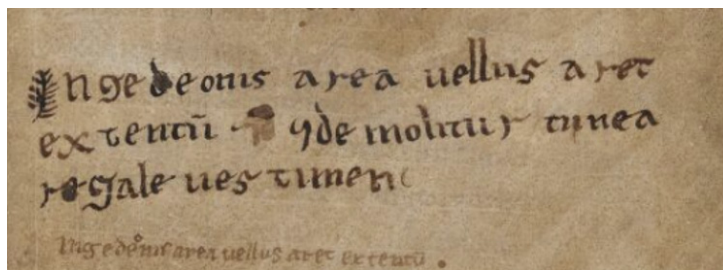 In gedeonis area uellus aret
extentū qde molitur tinea
regale uestimen
in gedeonis area uellus aret extentū .